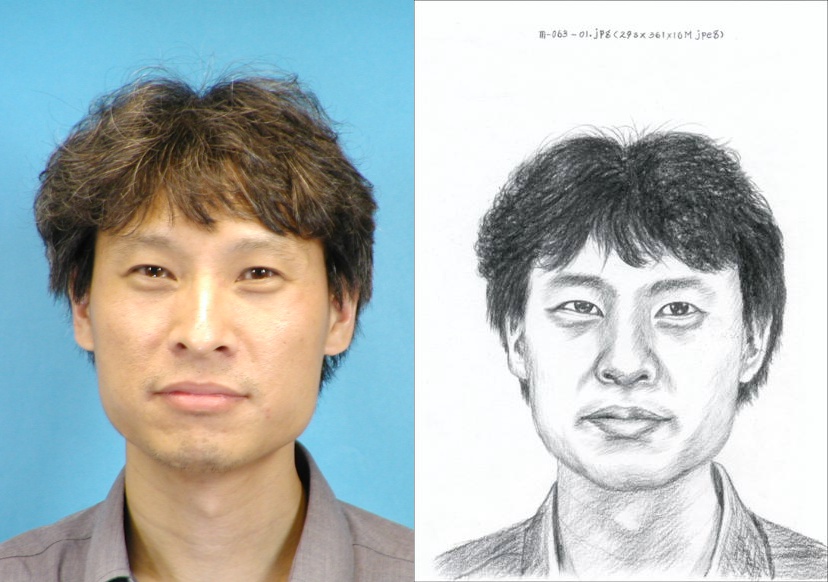 m-063-01.jpg(295x361x16M jpeg)